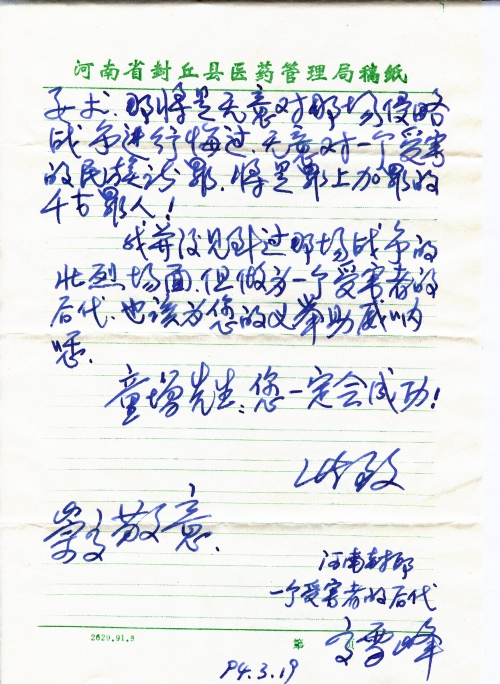 河南省封丘县医药管理局稿纸
要求，那将是无意对那场侵略
战争进行悔过，无意对一个受害
的民族认罪，将是罪上加罪的
千古罪人！
我并没见到过那场战争的
壮烈场面，但做为一个受害者的
后代，也该为您的义举助威呐
喊。
童增先生：您一定会成功！
此致
崇高敬意。
河南封邱
一个受害者的后代
雪峰
2629.91.9
第
94.3.19